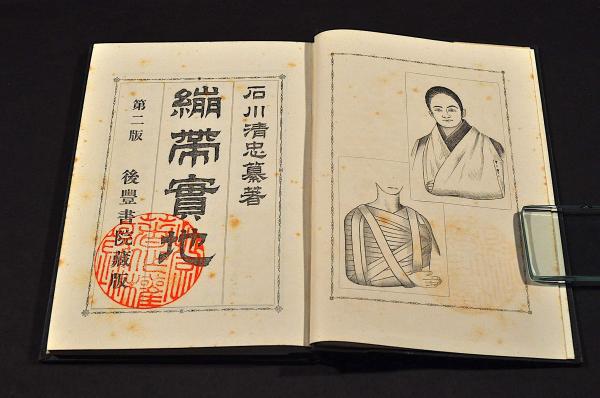 石川清忠纂著
繃帶實地
第二版　後豐書院藏版